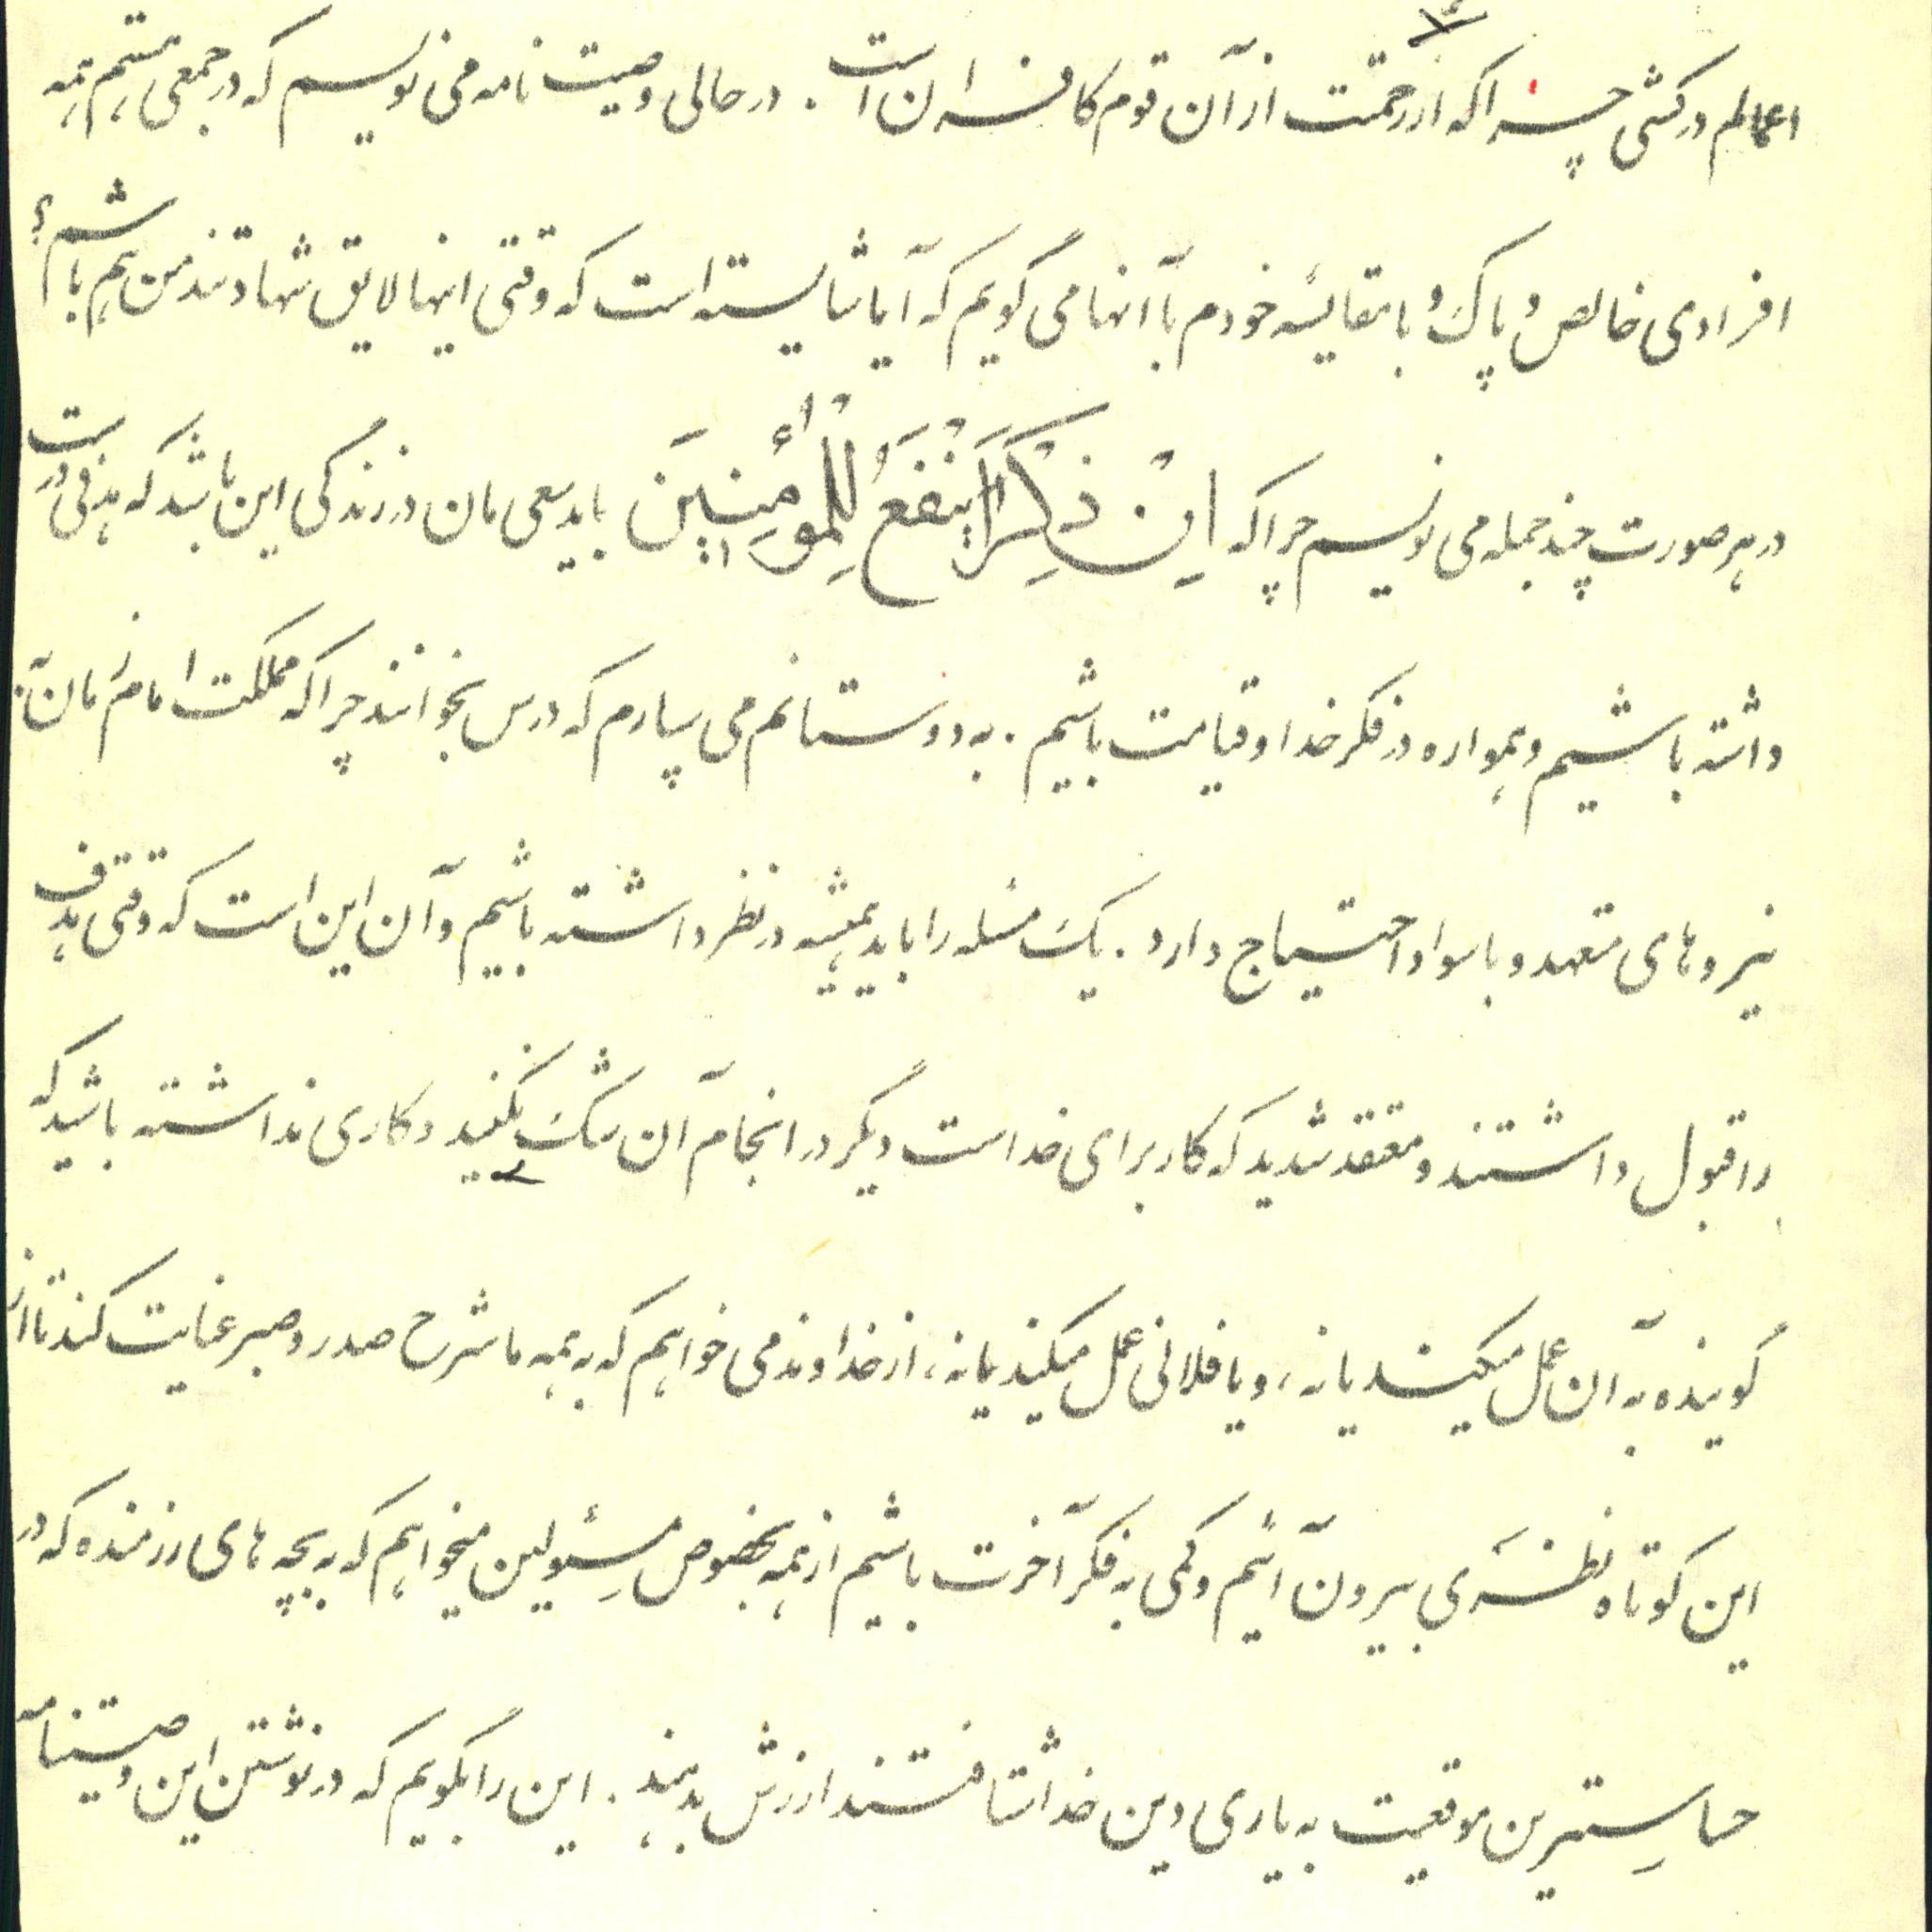 اعمالم در کشی چرا که از رحمتت از آن قوم کافران است. در حالی وصیت نامه می نویسم که در جمعی هستم همه
افرادی خالص و پاک و با مقایسه خودم با آنها می گویم که آیا شایسته است که وقتی اینها لایق شهادتند من هم باشم؟
در هر صورت چند جمله می نویسم چرا که اِنْ ذِکْرَا یَنْفَعُ لِلْمُؤمِنِینَ باید سعی مان در زندگی این باشد که هدفی درست
داشته باشیم و همواره در فکر خدا و قیامت باشیم. به دوستانم می سپارم که درس بخوانند چرا که مملکت امام زمان به
نیروهای متعهد و باسواد احتیاج دارد. یک مسئله را باید همیشه در نظر داشته باشیم و آن این است که وقتی هدف
را قبول داشتند و معتقد شدید که کار برای خداست دیگر در انجام آن شک نکنید و کاری نداشته باشید که
گوینده به آن عمل میکند یا نه، و یا فلانی عمل میکند یا نه، از خداوند می خواهم که به همه ما شرح صدر و صبر عنایت کند تا از
این کوتاه نظری بیرون آئیم و کمی به فکر آخرت باشیم از همه بخصوص مسئولین میخواهم که به بچه های رزمنده که در
حساسترین موقعیت به یاری دین خدا شتافتند ارزش بدهند. این را بگویم که در نوشتن این وصیتنامه